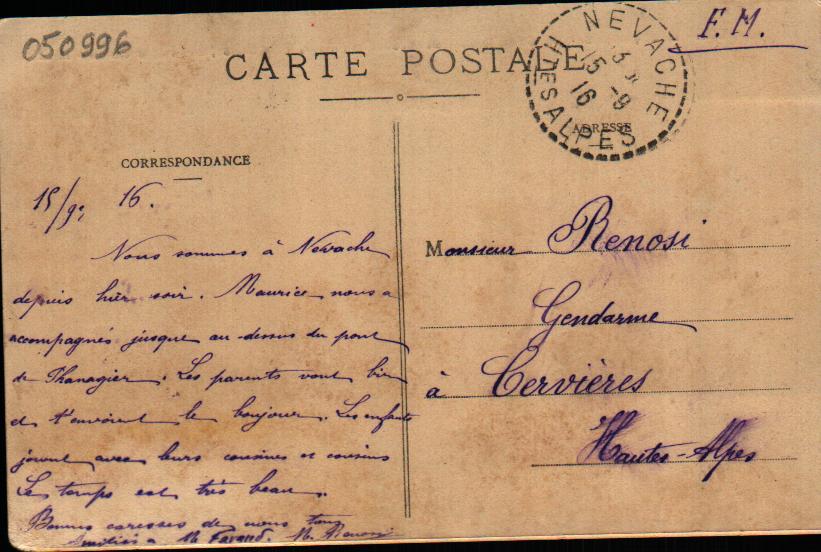 050996
CARTE POSTALE
F.M.
NEVACHE
15 -9
16
Htes ALPES
ADRESSE
CORRESPONDANCE
15/9 16.
Nous sommes à Nevache
depuis hier soir. Maurice nous a
accompagnés jusque au-dessus du pont
de Thanagier. Les parents vont bien
et t'envoient le bonjour. Les enfants
jouent avec leurs cousines et cousins
Le temps est très beau.
Bonnes caresses de nous tous
Amitiés à M. Favand. M. Renosi
Monsieur Renosi
Gendarme
à Cervières
Hautes-Alpes